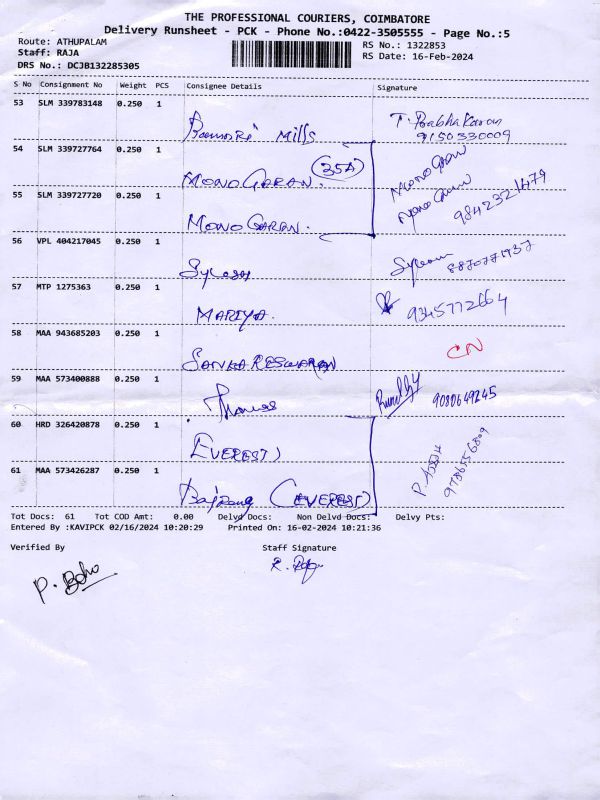 THE PROFESSIONAL COURIERS, COIMBATORE
Delivery Runsheet - PCK - Phone No.:0422-3505555 - Page No.:5
Route: ATHUPALAM
Staff: RAJA
DRS No.: DCJB132285305
RS No.: 1322853
RS Date: 16-Feb-2024
S No Consignment No Weight PCS Consignee Details Signature
53 SLM 339783148 0.250 1 Mills T. Prabhakaran
9150330009
54 SLM 339727764 0.250 1 MONO GARAN. (35A) Mono Garan
55 SLM 339727720 0.250 1 MONO GARAN. Mono Garan 9842321479
56 VPL 404217045 0.250 1
57 MTP 1275363 0.250 1 MARIYA. 9345772664
58 MAA 943685203 0.250 1 SANKARESWARAN CN
59 MAA 573400888 0.250 1 Thomas 9080649245
60 HRD 326420878 0.250 1 EVEREST)
61 MAA 573426287 0.250 1 Bajrang (EVEREST)
Tot Docs: 61 Tot COD Amt: 0.00 Delvd Docs: Non Delvd Docs: Delvy Pts:
Entered By :KAVIPCK 02/16/2024 10:20:29 Printed On: 16-02-2024 10:21:36
Verified By Staff Signature